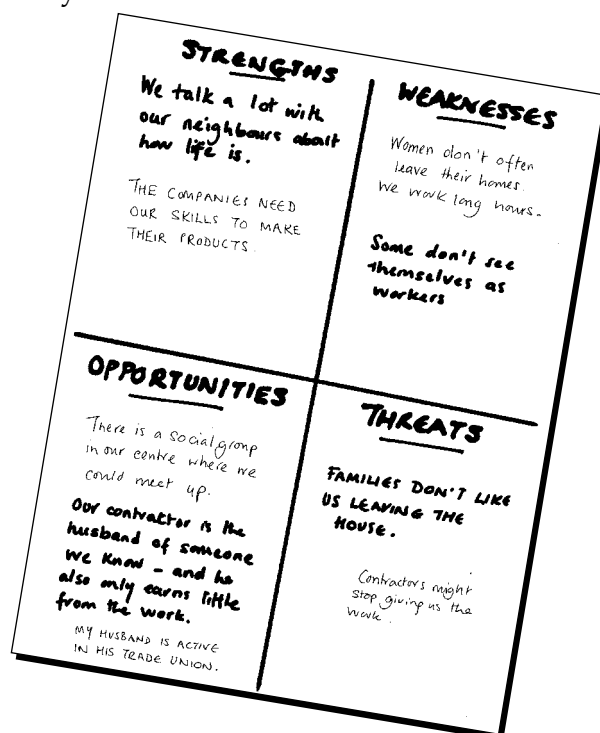 STRENGTHS
We talk a lot with
our neighbours about
how life is.
THE COMPANIES NEED
OUR SKILLS TO MAKE
THEIR PRODUCTS.
WEAKNESSES
Women don't often
leave their homes.
We work long hours.
Some don't see
themselves as
workers
OPPORTUNITIES
There is a social group
in our centre where we
could meet up.
Our contractor is the
husband of someone
we know – and he
also only earns little
from the work.
MY HUSBAND IS ACTIVE
IN HIS TRADE UNION.
THREATS
FAMILIES DON'T LIKE
US LEAVING THE
HOUSE.
Contractors might
stop giving us the
work.